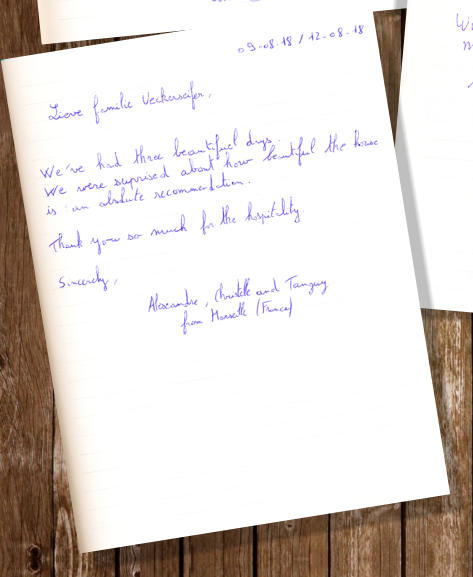 09-08-18 / 12-08-18
Lieve familie
We've had three beautiful days.
We were suprised about how beautiful the house
is : an absolute recommendation.
Thank you so much for the hospitality
Sincerely,
Alexandre, Christelle and Tanguy
from Marseille (France)
Wi